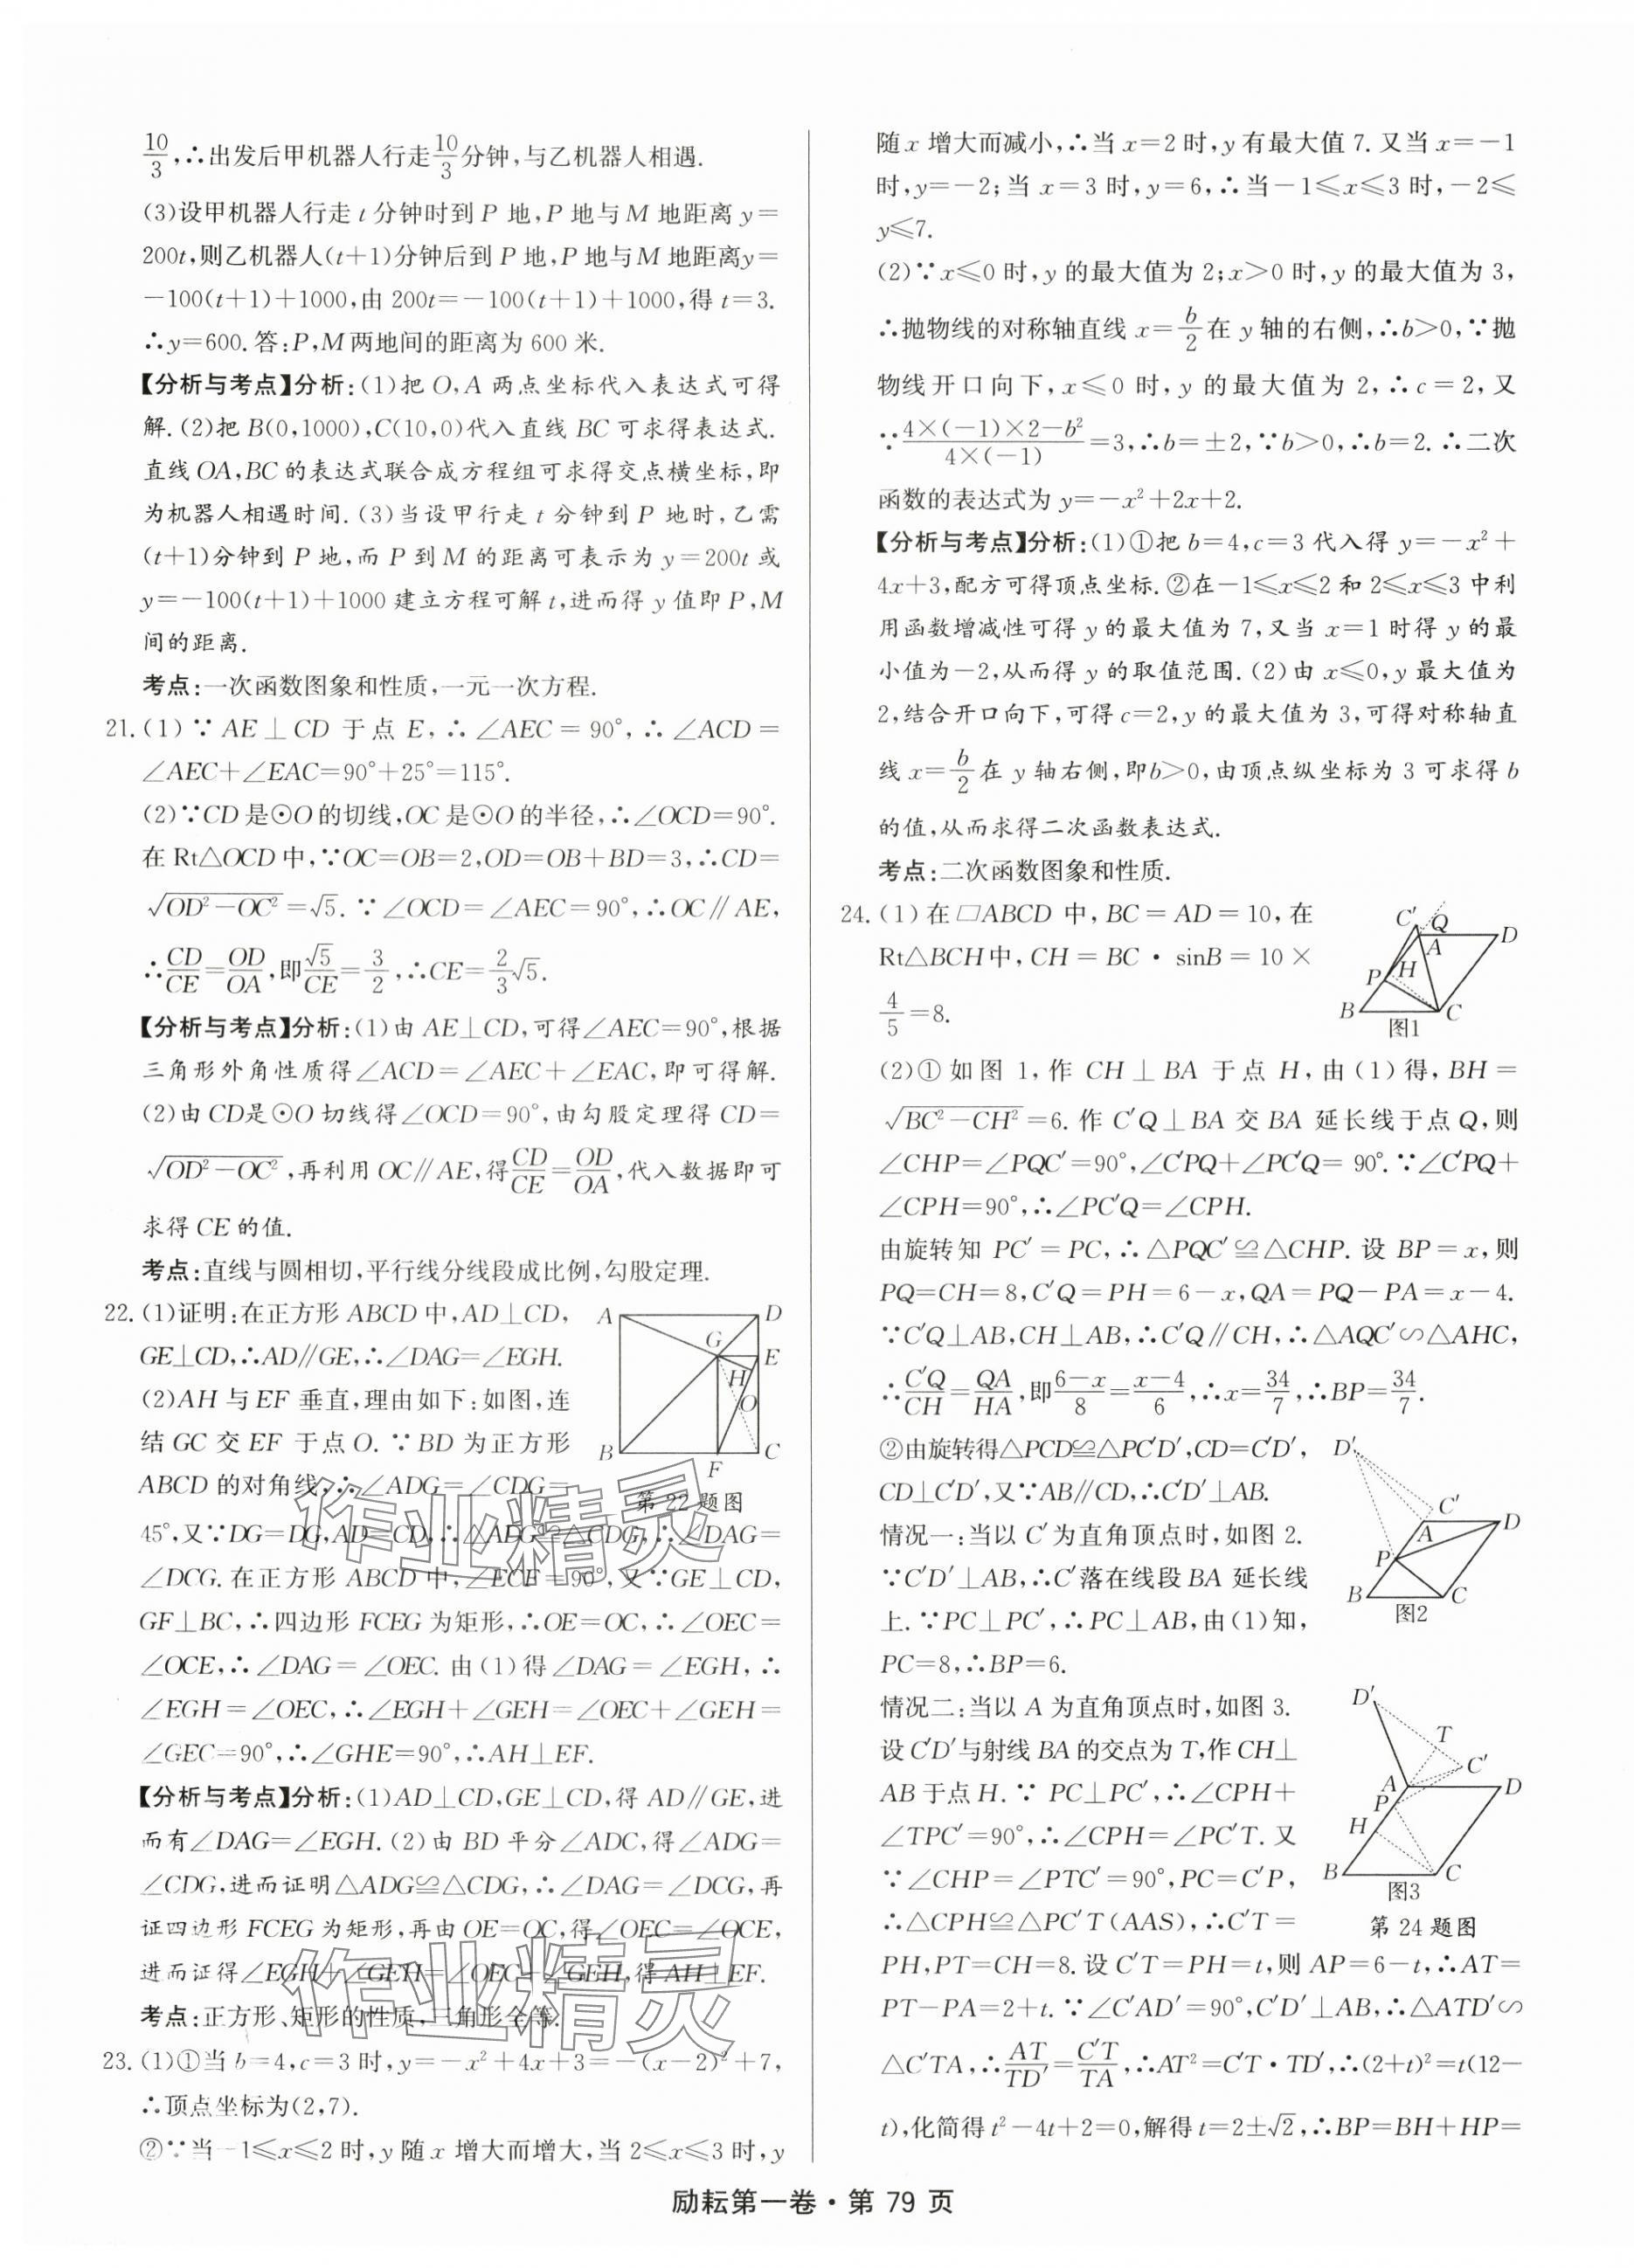 10/3,∴出发后甲机器人行走10/3分钟,与乙机器人相遇.
(3)设甲机器人行走 t 分钟时到 P 地,P 地与 M 地距离 y=
200t,则乙机器人(t+1)分钟后到 P 地,P 地与 M 地距离y=
-100(t+1)+1000,由 200t=-100(t+1)+1000,得 t=3.
∴y=600.答:P,M两地间的距离为 600 米.
【分析与考点】分析:(1)把 O,A 两点坐标代入表达式可得
解.(2)把 B(0,1000),C(10,0)代入直线 BC 可求得表达式.
直线 OA,BC 的表达式联合成方程组可求得交点横坐标,即
为机器人相遇时间.(3)当设甲行走 t 分钟到 P 地时,乙需
(t+1)分钟到 P 地,而 P 到 M 的距离可表示为 y=200t 或
y=-100(t+1)+1000 建立方程可解 t,进而得 y 值即 P,M
间的距离.
考点:一次函数图象和性质,一元一次方程.
21.(1)∵AE⊥CD 于点 E,∴∠AEC=90°,∴∠ACD=
∠AEC+∠EAC=90°+25°=115°.
(2)∵CD 是⊙O 的切线,OC 是⊙O 的半径,∴∠OCD=90°.
在 Rt△OCD 中,∵OC=OB=2,OD=OB+BD=3,∴CD=
√(OD²-OC²)=√5.∵∠OCD=∠AEC=90°,∴OC∥AE,
∴CD/CE=OD/OA,即√5/CE=3/2,∴CE=2/3√5.
【分析与考点】分析:(1)由 AE⊥CD,可得∠AEC=90°,根据
三角形外角性质得∠ACD=∠AEC+∠EAC,即可得解.
(2)由 CD是⊙O 切线得∠OCD=90°,由勾股定理得 CD=
√(OD²-OC²),再利用 OC∥AE,得CD/CE=OD/OA,代入数据即可
求得 CE 的值.
考点:直线与圆相切,平行线分线段成比例,勾股定理.
22.(1)证明:在正方形 ABCD 中,AD⊥CD,
GE⊥CD,∴AD∥GE,∴∠DAG=∠EGH.
(2)AH 与 EF 垂直,理由如下:如图,连
结 GC 交 EF 于点 O.∵BD 为正方形
ABCD 的对角线,∴∠ADG=∠CDG=
A D G E H O B F C
第 22 题图
45°,又∵DG=DG,AD=CD,∴△ADG≌△CDG,∴∠DAG=
∠DCG.在正方形 ABCD 中,∠ECF=90°,又∵GE⊥CD,
GF⊥BC,∴四边形 FCEG 为矩形,∴OE=OC,∴∠OEC=
∠OCE,∴∠DAG=∠OEC.由(1)得∠DAG=∠EGH,∴
∠EGH=∠OEC,∴∠EGH+∠GEH=∠OEC+∠GEH=
∠GEC=90°,∴∠GHE=90°,∴AH⊥EF.
【分析与考点】分析:(1)AD⊥CD,GE⊥CD,得 AD∥GE,进
而有∠DAG=∠EGH.(2)由 BD 平分∠ADC,得∠ADG=
∠CDG,进而证明△ADG≌△CDG,∴∠DAG=∠DCG,再
证四边形 FCEG 为矩形,再由 OE=OC,得∠OEC=∠OCE,
进而证得∠EGH+∠GEH=∠OEC+∠GEH,得 AH⊥EF.
考点:正方形、矩形的性质,三角形全等.
23.(1)①当 b=4,c=3 时,y=-x²+4x+3=-(x-2)²+7,
∴顶点坐标为(2,7).
②∵当-1≤x≤2 时,y 随 x 增大而增大,当 2≤x≤3 时,y
随 x 增大而减小,∴当 x=2 时,y 有最大值 7.又当 x=-1
时,y=-2;当 x=3 时,y=6,∴当-1≤x≤3 时,-2≤
y≤7.
(2)∵x≤0 时,y 的最大值为 2;x>0 时,y 的最大值为 3,
∴抛物线的对称轴直线 x=b/2在 y 轴的右侧,∴b>0,∵抛
物线开口向下,x≤0 时,y 的最大值为 2,∴c=2,又
∵(4×(-1)×2-b²)/(4×(-1))=3,∴b=±2,∵b>0,∴b=2.∴二次
函数的表达式为 y=-x²+2x+2.
【分析与考点】分析:(1)①把 b=4,c=3 代入得 y=-x²+
4x+3,配方可得顶点坐标.②在-1≤x≤2 和 2≤x≤3 中利
用函数增减性可得 y 的最大值为 7,又当 x=1 时得 y 的最
小值为-2,从而得 y 的取值范围.(2)由 x≤0,y 最大值为
2,结合开口向下,可得 c=2,y 的最大值为 3,可得对称轴直
线 x=b/2在 y 轴右侧,即b>0,由顶点纵坐标为 3 可求得 b
的值,从而求得二次函数表达式.
考点:二次函数图象和性质.
24.(1)在▱ABCD 中,BC=AD=10,在
Rt△BCH中,CH=BC·sinB=10×
4/5=8.
C′ Q A D P H B C
图1
(2)①如图 1,作 CH⊥BA 于点 H,由(1)得,BH=
√(BC²-CH²)=6.作 C′Q⊥BA 交 BA 延长线于点 Q,则
∠CHP=∠PQC′=90°,∠C′PQ+∠PC′Q=90°.∵∠C′PQ+
∠CPH=90°,∴∠PC′Q=∠CPH.
由旋转知 PC′=PC,∴△PQC′≌△CHP.设 BP=x,则
PQ=CH=8,C′Q=PH=6-x,QA=PQ-PA=x-4.
∵C′Q⊥AB,CH⊥AB,∴C′Q∥CH,∴△AQC′∽△AHC,
∴C′Q/CH=QA/HA,即(6-x)/8=(x-4)/6,∴x=34/7,∴BP=34/7.
②由旋转得△PCD≌△PC′D′,CD=C′D′,
CD⊥C′D′,又∵AB∥CD,∴C′D′⊥AB.
情况一:当以 C′为直角顶点时,如图 2.
∵C′D′⊥AB,∴C′落在线段 BA 延长线
上.∵PC⊥PC′,∴PC⊥AB,由(1)知,
PC=8,∴BP=6.
D′ C′ A D P B C
图2
情况二:当以 A 为直角顶点时,如图 3.
设 C′D′与射线 BA 的交点为 T,作 CH⊥
AB 于点 H.∵PC⊥PC′,∴∠CPH+
∠TPC′=90°,∴∠CPH=∠PC′T.又
∵∠CHP=∠PTC′=90°,PC=C′P,
∴△CPH≌△PC′T(AAS),∴C′T=
D′ T C′ A D P H B C
图3
第 24 题图
PH,PT=CH=8.设 C′T=PH=t,则 AP=6-t,∴AT=
PT-PA=2+t.∵∠C′AD′=90°,C′D′⊥AB,∴△ATD′∽
△C′TA,∴AT/TD′=C′T/TA,∴AT²=C′T·TD′,∴(2+t)²=t(12-
t),化简得 t²-4t+2=0,解得 t=2±√2,∴BP=BH+HP=
励耘第一卷·第 79 页
作业精灵
作业精灵